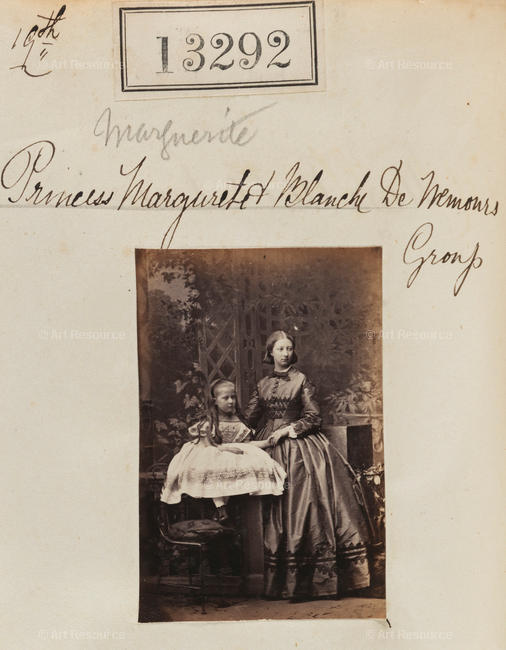 19th
13292
Marguerite
Princess Margurete & Blanche De Nemours
Group
© Art Resource
© Art Resource
© Art Resource
© Art Resource
© Art Resource
© Art Resource
© Art Resource
© Art Resource
© Art Resource